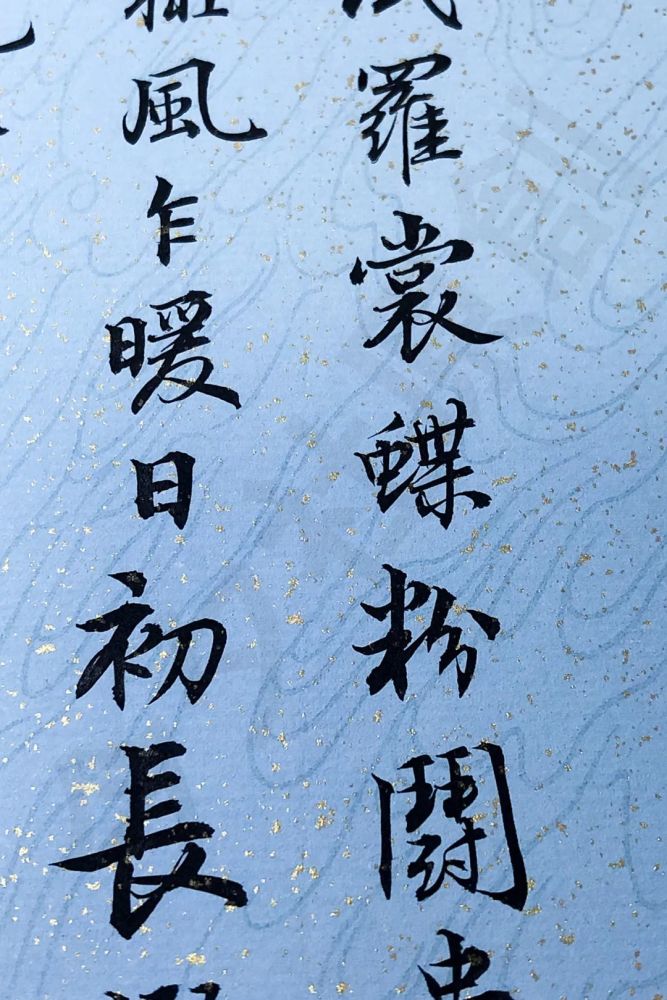 羅裳蝶粉鬭
風乍暖日初長